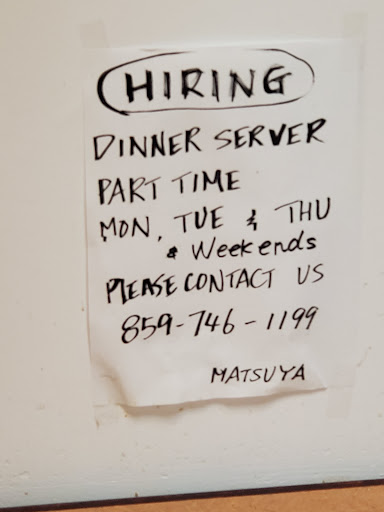 HIRING
DINNER SERVER
PART TIME
MON, TUE & THU
& Weekends
PLEASE CONTACT US
859-746-1199
MATSUYA